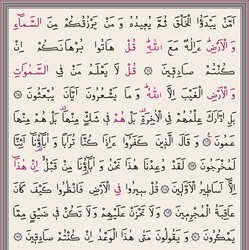 أَمَّن يَبْدَؤُا۟ الْخَلْقَ ثُمَّ يُعِيدُهُ وَ مَن يَرْزُقُكُم مِّنَ السَّمَاءِ
وَ الْأَرْضِ أَءِلَٰهٌ مَّعَ اللَّهِ قُلْ هَاتُوا بُرْهَانَكُمْ إِن
كُنتُمْ صَادِقِينَ قُل لَّا يَعْلَمُ مَن فِي السَّمَٰوَاتِ
وَ الْأَرْضِ الْغَيْبَ إِلَّا اللَّهُ وَ مَا يَشْعُرُونَ أَيَّانَ يُبْعَثُونَ
بَلِ ادَّارَكَ عِلْمُهُمْ فِي الْآخِرَةِ بَلْ هُمْ فِي شَكٍّ مِّنْهَا بَلْ هُم مِّنْهَا
عَمُونَ وَ قَالَ الَّذِينَ كَفَرُوا أَءِذَا كُنَّا تُرَابًا وَ ءَابَاؤُنَا أَئِنَّا
لَمُخْرَجُونَ لَقَدْ وُعِدْنَا هَٰذَا نَحْنُ وَ ءَابَاؤُنَا مِن قَبْلُ إِنْ هَٰذَا
إِلَّا أَسَاطِيرُ الْأَوَّلِينَ قُلْ سِيرُوا فِي الْأَرْضِ فَانظُرُوا كَيْفَ كَانَ
عَاقِبَةُ الْمُجْرِمِينَ وَ لَا تَحْزَنْ عَلَيْهِمْ وَ لَا تَكُن فِي ضَيْقٍ مِّمَّا
يَمْكُرُونَ وَ يَقُولُونَ مَتَىٰ هَٰذَا الْوَعْدُ إِن كُنتُمْ صَادِقِينَ